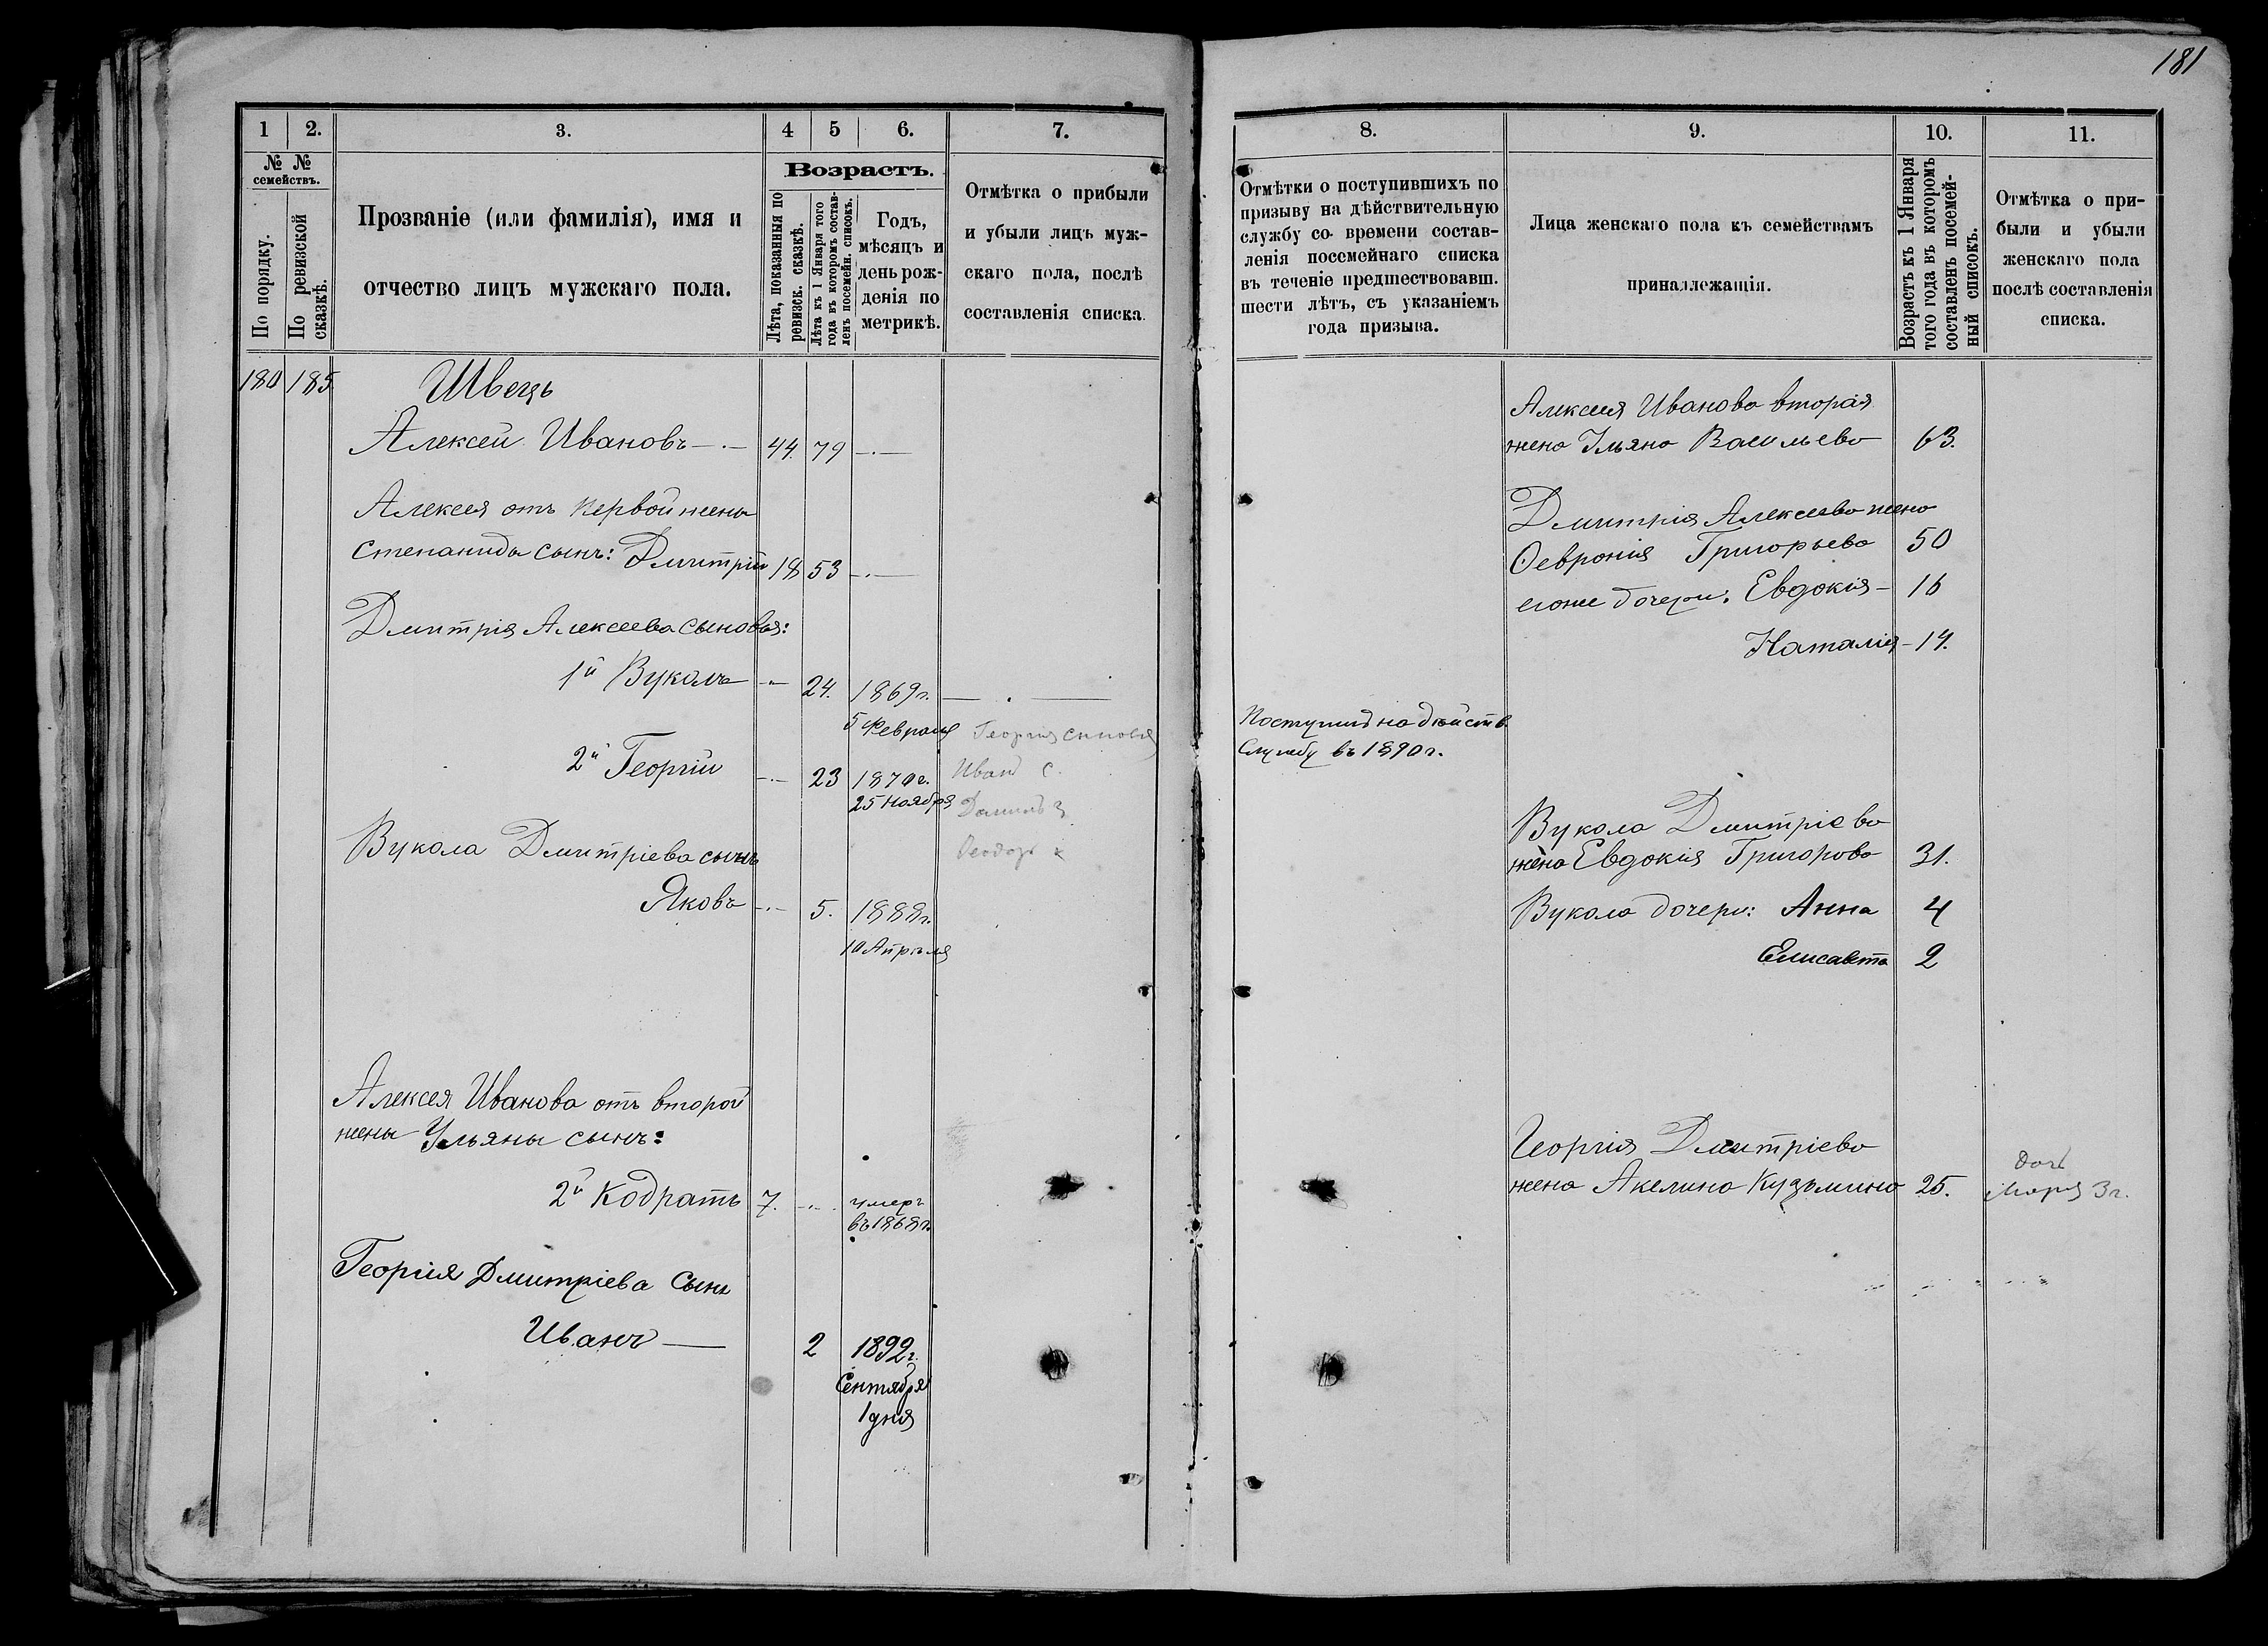 181
1 2. 3. 4 5 6. 7.
№ № семействъ.
По порядку.
По ревизской сказкѣ.
Прозваніе (или фамилія), имя и
отчество лицъ мужскаго пола.
Возрастъ.
Лѣта, показанныя по
ревизск. сказкѣ.
Лѣта къ 1 Января того
года въ которомъ состав-
ленъ посемейн. списокъ.
Годъ,
мѣсяцъ и
день рож-
денія по
метрикѣ.
Отмѣтка о прибыли
и убыли лицъ муж-
скаго пола, послѣ
составленія списка.
180 185 Швецъ
Алексей Ивановъ —.— 44. 79 —.—
Алексея отъ первой жены
Степаниды сынъ: Дмитрій 18 53 —.—
Дмитрія Алексеева сыновья:
1й Вуколъ — 24. 1869г. — . —
5 Февраля
Георгия сыновья
2й Георгій —.— 23 1870г.
Иван
25 Ноября
Вукола Дмитріева сынъ
Яковъ —.— 5. 1888г.
10 Апрѣля
Алексея Иванова отъ второй
жены Ульяны сынъ:
2й Кодратъ 7. —.— умеръ
въ 1868г.
Георгия Дмитріева сынъ
Иванъ — 2 1892г.
Сентября
1 дня
8. 9. 10. 11.
Отмѣтки о поступившихъ по
призыву на дѣйствительную
службу со времени состав-
ленія посемейнаго списка
въ теченіе предшествовавш.
шести лѣтъ, съ указаніемъ
года призыва.
Лица женскаго пола къ семействамъ
принадлежащія.
Возрастъ къ 1 Января
того года въ которомъ
составленъ посемей-
ный списокъ.
Отмѣтка о при-
были и убыли
женскаго пола
послѣ составленія
списка.
Алексея Иванова вторая
жена Ульяна Васильева 63.
Дмитрія Алексеева жена
Февронія Григорьева 50
егоже дочери: Евдокія — 16
Наталія — 14.
Поступил на дѣйств.
службу въ 1890г.
Вукола Дмитріева
жена Евдокія Григорова 31.
Вукола дочери: Анна 4
Елисавета 2
Георгія Дмитріева
жена Акелина Кузьмина 25.
доч
Мария 3г.